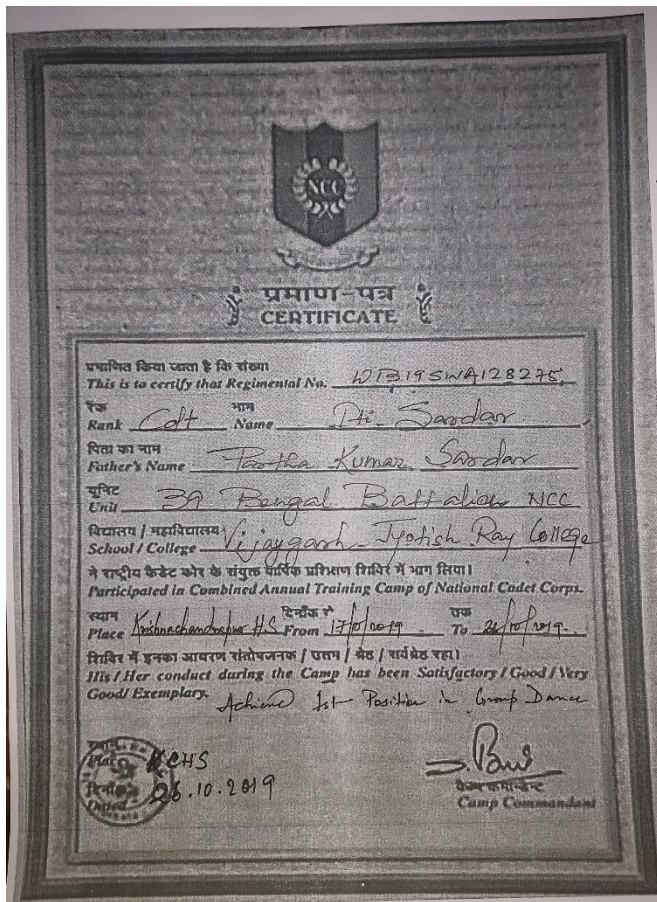 NCC
प्रमाण-पत्र
CERTIFICATE
प्रमाणित किया जाता है कि संख्या
This is to certify that Regimental No. WB19SWA128275
रैंक नाम
Rank Cdt Name Iti Sardar
पिता का नाम
Father's Name Partha Kumar Sardar
यूनिट
Unit 39 Bengal Battalion NCC
विद्यालय / महाविद्यालय
School / College Vijaygarh Jyotish Ray College
ने राष्ट्रीय कैडेट कोर के संयुक्त वार्षिक प्रशिक्षण शिविर में भाग लिया।
Participated in Combined Annual Training Camp of National Cadet Corps.
स्थान दिनाँक से तक
Place Krishnachandrapur H.S From 17/10/2019 To 26/10/2019
शिविर में इनका आचरण संतोषजनक / उत्तम / श्रेष्ठ / सर्वश्रेष्ठ रहा।
His / Her conduct during the Camp has been Satisfactory / Good / Very
Good/ Exemplary.
Achieved 1st Position in Group Dance
स्थान
Place KCHS
दिनाँक
Dated 26.10.2019
कैम्प कमान्डेन्ट
Camp Commandant